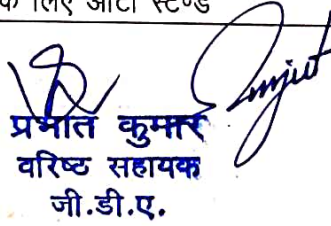 के लिए ऑटो स्टैण्ड
प्रभात कुमार
वरिष्ठ सहायक
जी.डी.ए.